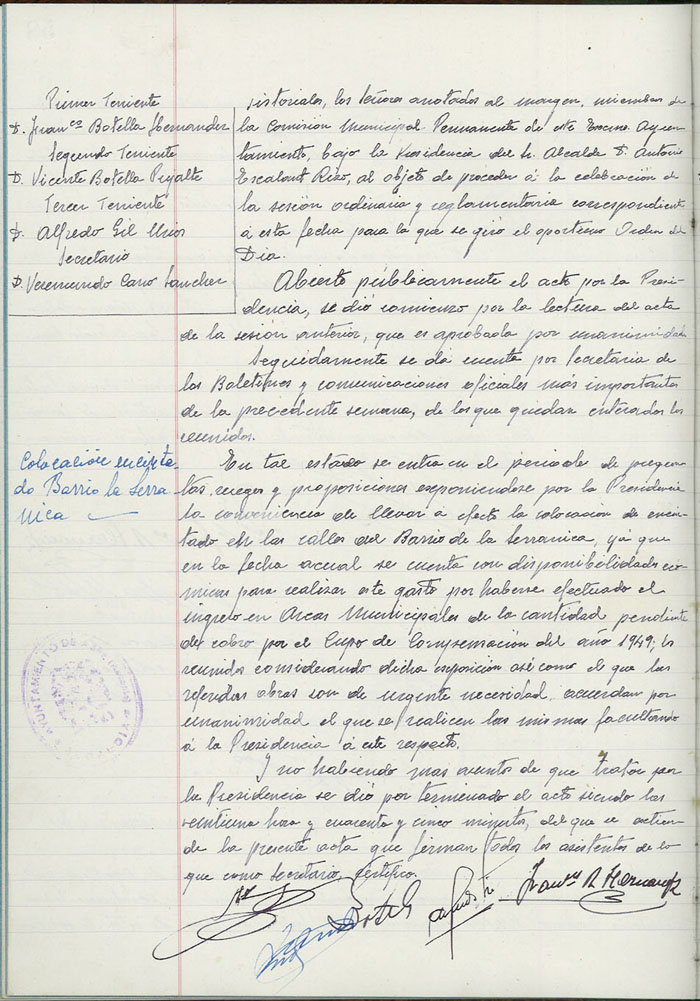 Primer Teniente
D. Franco Botella Hernandez
Segundo Teniente
D. Vicente Botella Ripalte
Tercer Teniente
D. Alfredo Gil Urios
Secretario
D. Veremundo Cano Sanchez
sistoriales, los señores anotados al margen, miembros de
la Comisión Municipal Permanente de este Excmo. Ayun-
tamiento, bajo la Presidencia del Sr. Alcalde D. Antonio
Escalant Rizo, al objeto de proceder á la celebración de
la sesión ordinaria y reglamentaria correspondiente
á esta fecha para la que se giró el oportuno Orden del
Dia.
Abierto públicamente el acto por la Presi-
dencia, se dió comienzo por la lectura del acta
de la sesión anterior, que es aprobada por unanimidad.
Seguidamente se dá cuenta por Secretaria de
los Boletines y comunicaciones oficiales mas importantes
de la precedente semana, de los que quedan enterados los
reunidos.
Colocación encinta
do Barrio la Serra
nica
En tal estado se entra en el periodo de pregun-
tas, ruegos y proposiciones exponiendose por la Presidencia
la conveniencia de llevar á efecto la colocación de encin-
tado en las calles del Barrio de la Serranica, ya que
en la fecha actual se cuenta con disponibilidades eco-
nomicas para realizar este gasto por haberse efectuado el
ingreso en Arcas Municipales de la cantidad pendiente
de cobro por el Cupo de Compensación del año 1949; los
reunidos considerando dicha exposición asi como el que las
referidas obras son de urgente necesidad, acuerdan por
unanimidad el que se realicen las mismas facultando
á la Presidencia á este respecto.
AYUNTAMIENTO DE
Y no habiendo mas asuntos de que tratar por
la Presidencia se dió por terminado el acto siendo las
veintiuna hora y cuarenta y cinco minutos, del que se extien-
de la presente acta que firman todos los asistentes de lo
que como Secretario, certifico.
Botella
Franco B Hernandez